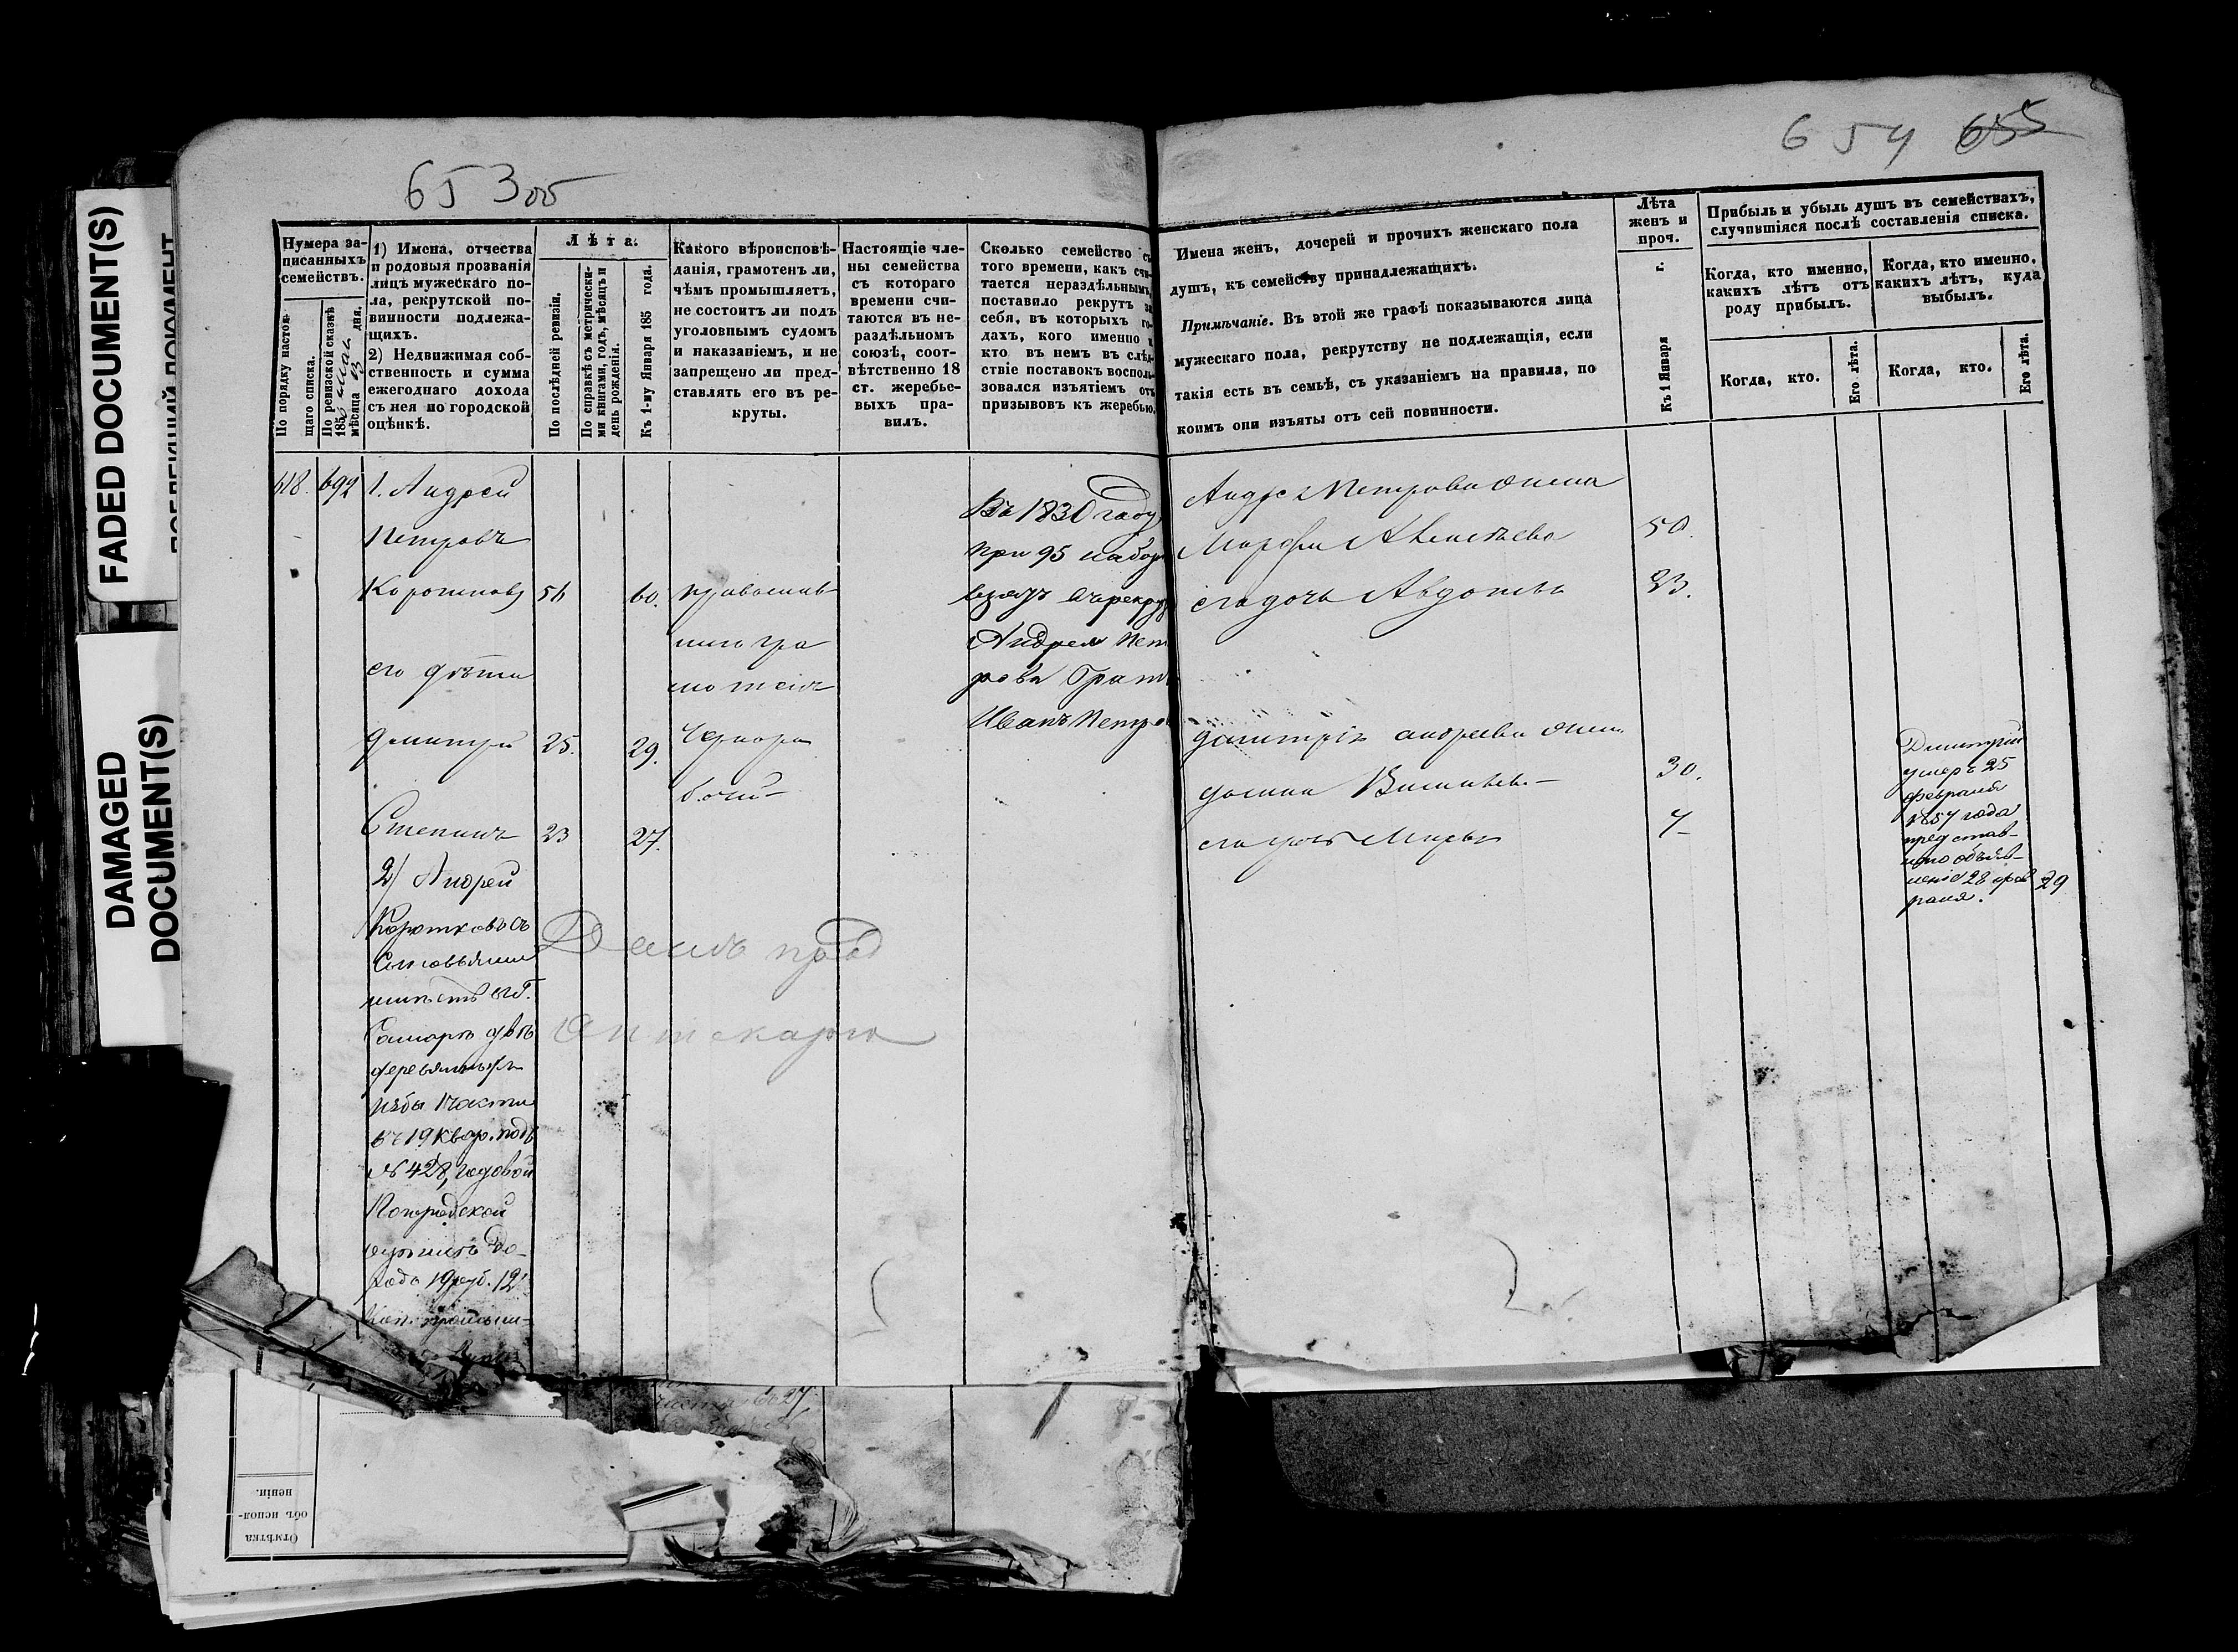 FADED DOCUMENT(S)
DAMAGED
DOCUMENT(S)
653 об
654 655
Нумера за-
писанныхъ
семействъ.
По порядку настоя-
щаго списка.
По ревизской сказкѣ
185 мѣсяца дня.
1) Имена, отчества
и родовыя прозванія
лицъ мужескаго по-
ла, рекрутской по-
винности подлежа-
щихъ.
2) Недвижимая соб-
ственность и сумма
ежегоднаго дохода
съ нея по городской
оцѣнкѣ.
Лѣта.
По послѣдней ревизіи.
По справкѣ съ метрически-
ми книгами, годъ, мѣсяцъ и
день рожденія.
Къ 1-му Января 185 года.
Какого вѣроисповѣ-
данія, грамотенъ ли,
чѣмъ промышляетъ,
не состоитъ ли подъ
уголовнымъ судомъ
и наказаніемъ, и не
запрещено ли пред-
ставлять его въ ре-
круты.
Настоящіе чле-
ны семейства
съ котораго
времени счи-
таются въ не-
раздѣльномъ
союзѣ, соот-
вѣтственно 18
ст. жеребье-
выхъ пра-
вилъ.
Сколько семейство съ
того времени, какъ счи-
тается нераздѣльнымъ,
поставило рекрутъ за
себя, въ которыхъ го-
дахъ, кого именно и
кто въ немъ въ слѣд-
ствіе поставокъ восполь-
зовался изъятіемъ отъ
призывовъ къ жеребью.
618. 692
1. Андрей
Петровъ
Коротковъ 56 60.
его дѣти
Дмитрій 25. 29.
Степанъ 23 27.
2) Андрей
Коротковъ съ
Сыновьями
имѣетъ въ г.
Самарѣ двѣ
деревянныхъ
избы 1 части
въ 19 квар. подъ
№ 428, годовой
Погородской
оцѣнкѣ до-
хода 19 руб. 12
коп.
православ
гра
мотенъ
Чернора
бочій
Въ 1830 году
при 95 набор
взятъ въ рекру
Андрея Пет
рова Брат
Иванъ Петро
Данъ пр
Аптекарю
Имена женъ, дочерей и прочихъ женскаго пола
душъ, къ семейству принадлежащихъ.
Примѣчаніе. Въ этой же графѣ показываются лица
мужескаго пола, рекрутству не подлежащія, если
такія есть въ семьѣ, съ указаніемъ на правила, по
коимъ они изъяты отъ сей повинности.
Лѣта
женъ и
проч.
Къ 1 Января г.
Прибыль и убыль душъ въ семействахъ,
случившіяся послѣ составленія списка.
Когда, кто именно,
какихъ лѣтъ отъ
роду прибылъ.
Когда, кто именно,
какихъ лѣтъ, куда
выбылъ.
Когда, кто.
Его лѣта.
Когда, кто.
Его лѣта.
Андрея Петрова жена
Марфа 50.
ея дочь Авдотья 23.
Дмитрія Андреева жена
30.
ея дочь Марья 7
Димитрій
умеръ 25
февраля
1857 года
представ-
лено объяв-
леніе 28 фев
раля. 29
Отмѣтка
объ испол-
неніи.